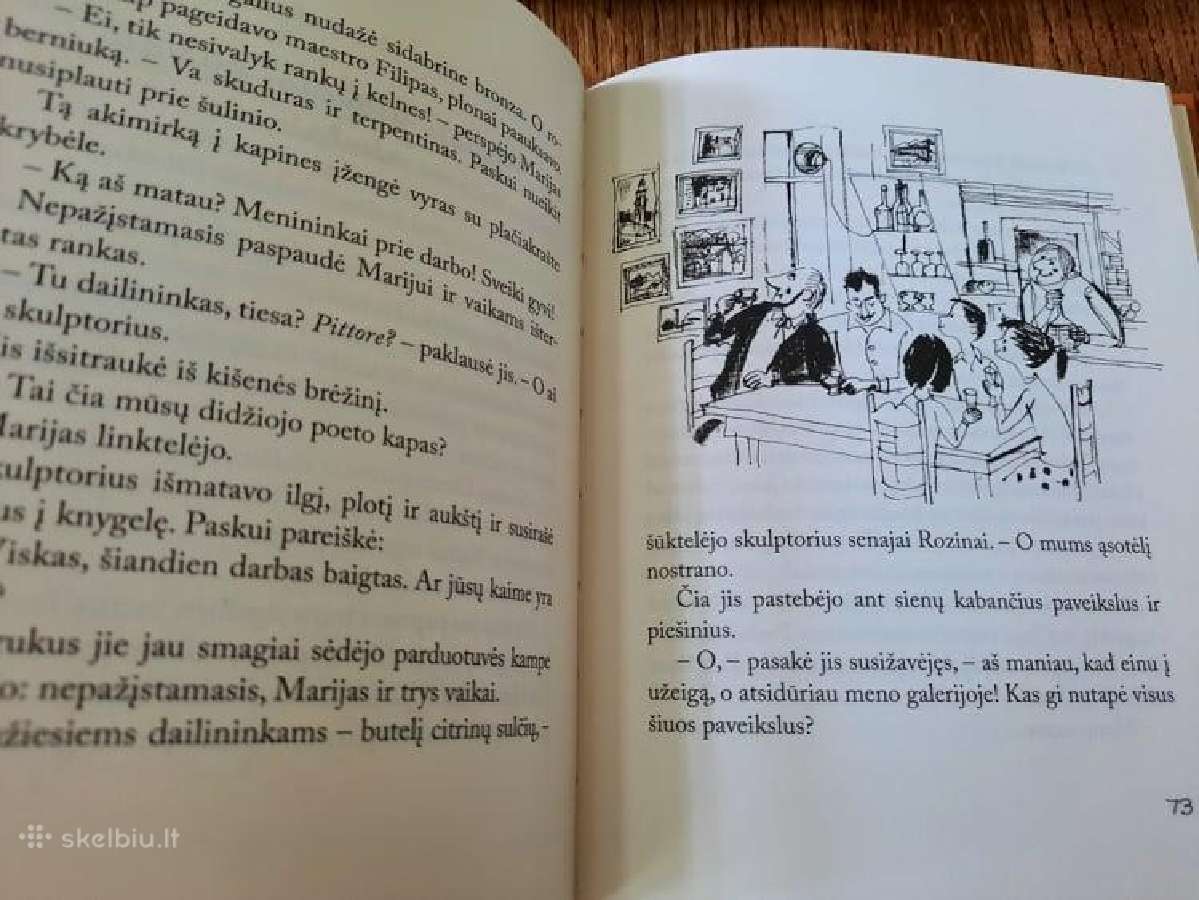 galius nudažė sidabrine bronza. O ro-
pageidavo maestro Filipas, plonai paauksavo
– Ei, tik nesivalyk rankų į kelnes! – perspėjo Marijas
berniuką. – Va skuduras ir terpentinas. Paskui nueikit
nusiplauti prie šulinio.
Tą akimirką į kapines įžengė vyras su plačiakrašte
skrybėle.
– Ką aš matau? Menininkai prie darbo! Sveiki gyvi!
Nepažįstamasis paspaudė Marijui ir vaikams ištep-
tas rankas.
– Tu dailininkas, tiesa? Pittore? – paklausė jis. – O aš
skulptorius.
Jis išsitraukė iš kišenės brėžinį.
Tai čia mūsų didžiojo poeto kapas?
Marijas linktelėjo.
Skulptorius išmatavo ilgį, plotį ir aukštį ir susirašė
į knygelę. Paskui pareiškė:
Viskas, šiandien darbas baigtas. Ar jūsų kaime yra
jie jau smagiai sėdėjo parduotuvės kampe
nepažįstamasis, Marijas ir trys vaikai.
dailininkams – butelį citrinų sulčių, –
šūktelėjo skulptorius senajai Rozinai. – O mums ąsotėlį
nostrano.
Čia jis pastebėjo ant sienų kabančius paveikslus ir
piešinius.
– O, – pasakė jis susižavėjęs, – aš maniau, kad einu į
užeigą, o atsidūriau meno galerijoje! Kas gi nutapė visus
šiuos paveikslus?
73
skelbiu.lt